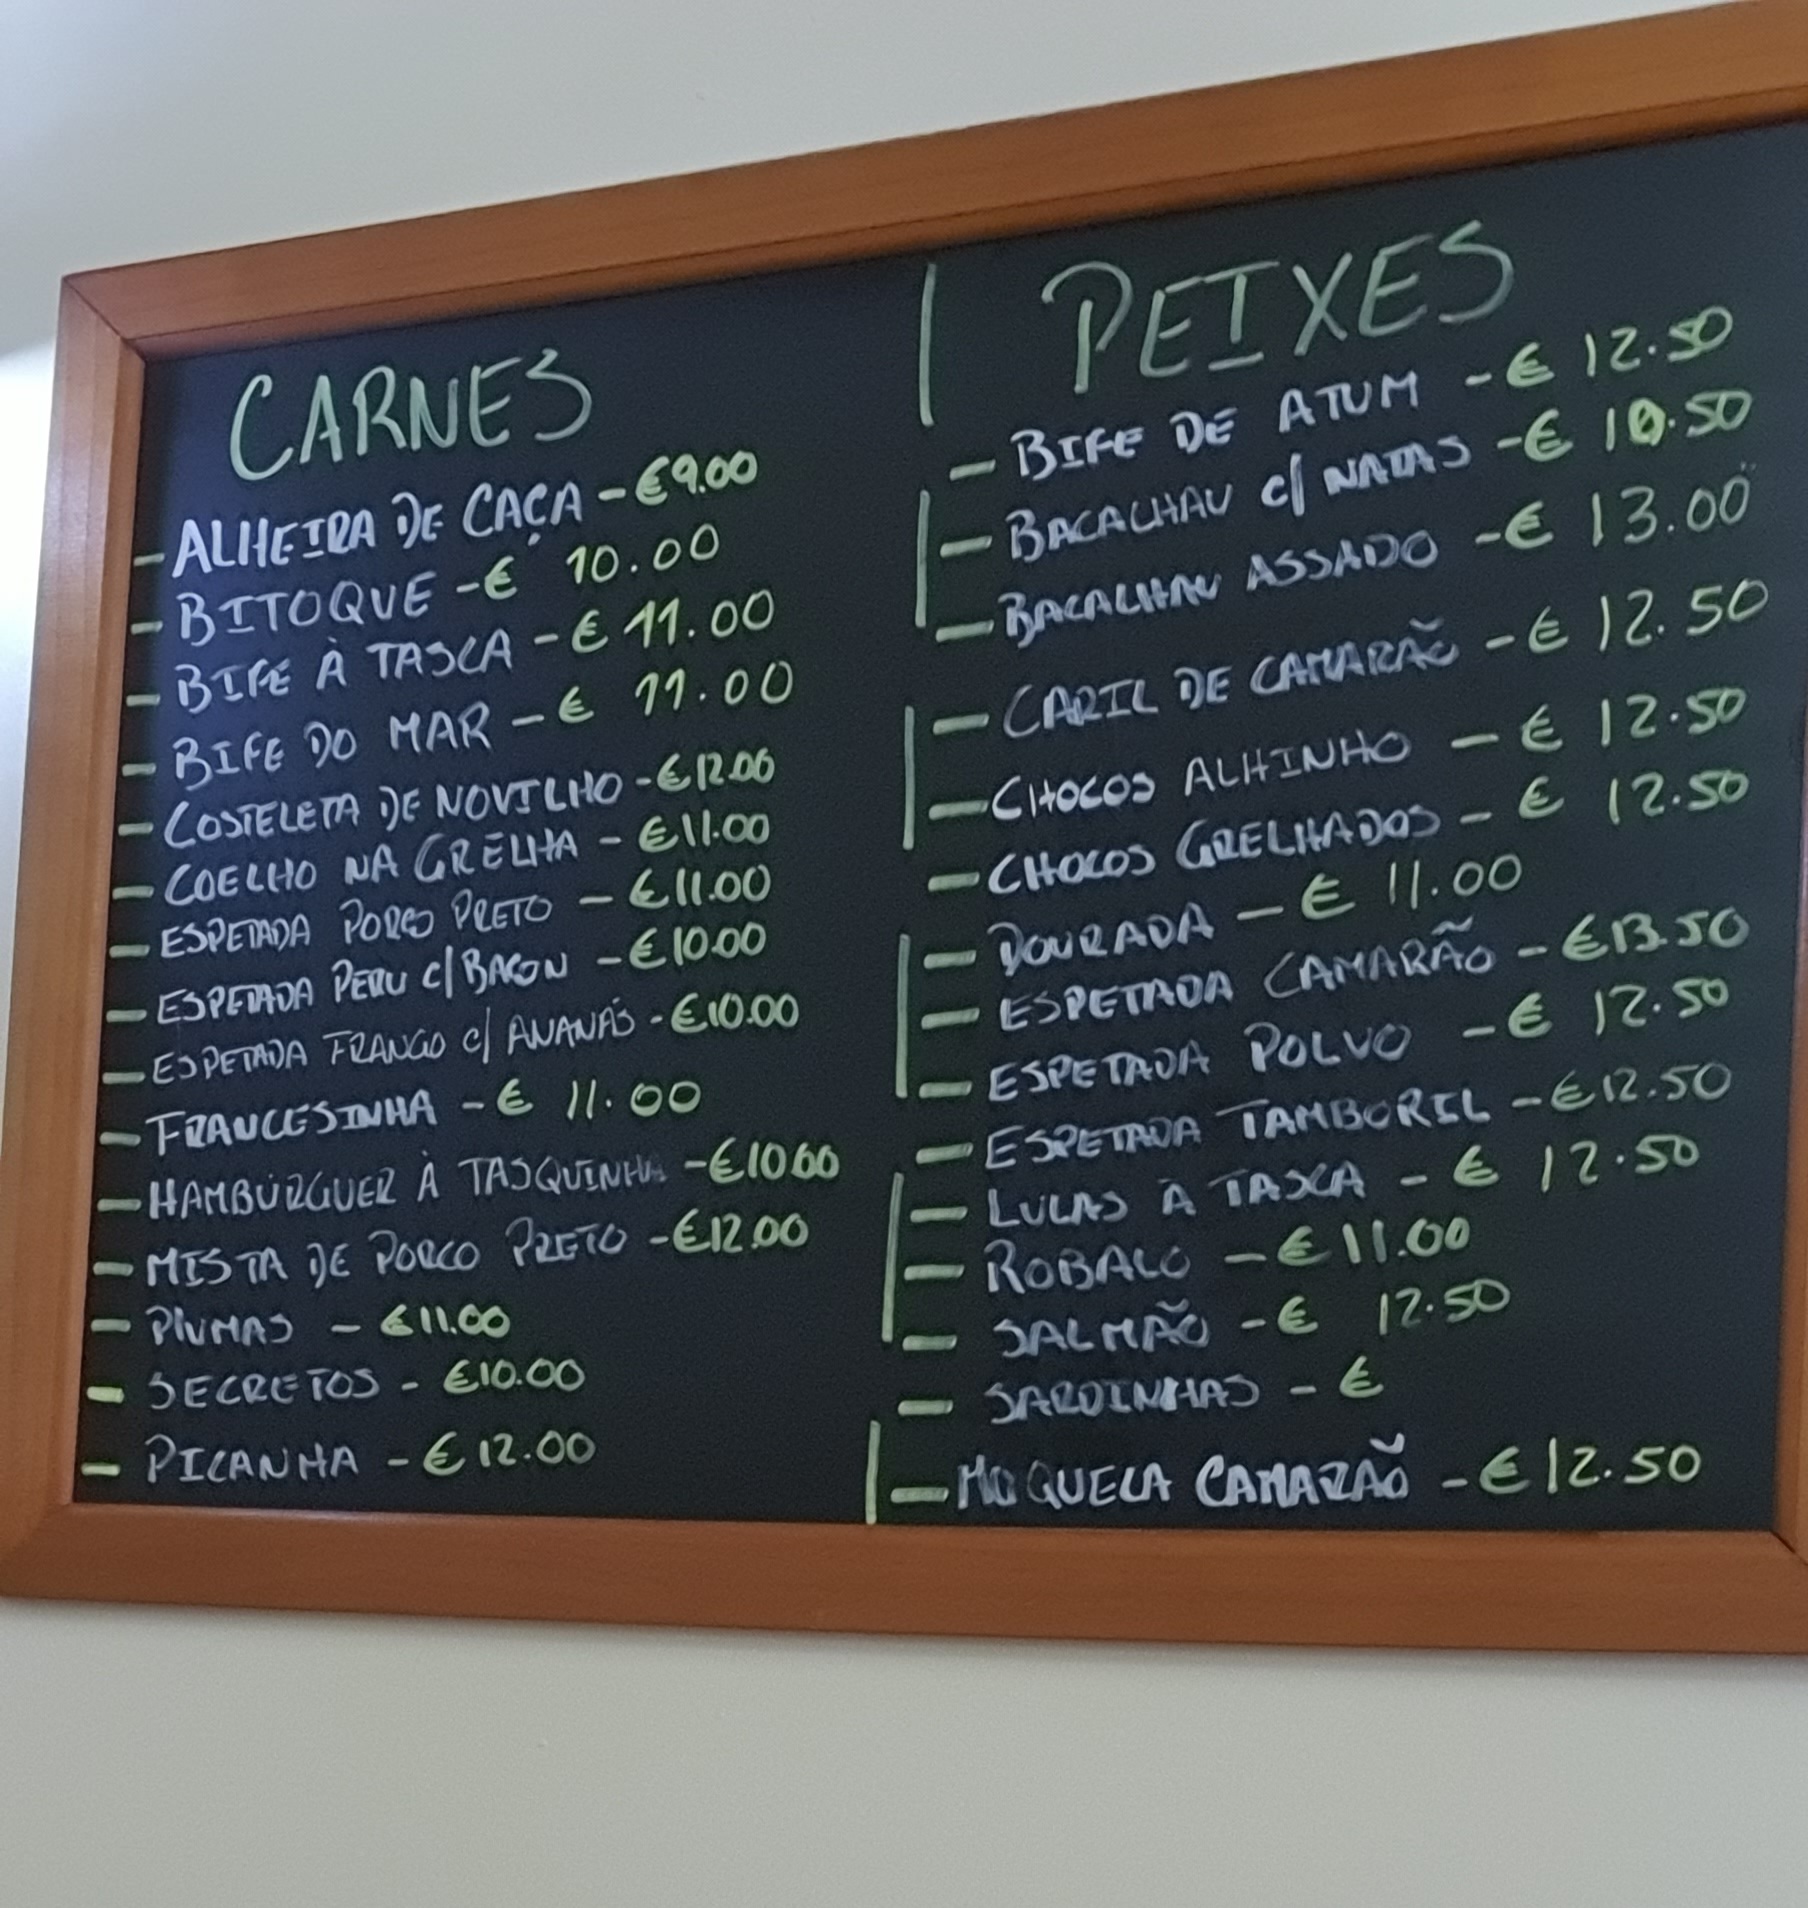 CARNES
- ALHEIRA DE CAÇA - €9.00
- BITOQUE - € 10.00
- BIFE À TASCA - € 11.00
- BIFE DO MAR - € 11.00
- COSTELETA DE NOVILHO - €12.00
- COELHO NA GRELHA - €11.00
- ESPETADA PORCO PRETO - €11.00
- ESPETADA PERU C/ BACON - €10.00
- ESPETADA FRANGO C/ ANANÁS - €10.00
- FRANCESINHA - € 11.00
- HAMBÚRGUER À TASQUINHA - €10.00
- MISTA DE PORCO PRETO - €12.00
- PLUMAS - €11.00
- SECRETOS - €10.00
- PICANHA - €12.00
PEIXES
- BIFE DE ATUM - € 12.50
- BACALHAU C/ NATAS - € 10.50
- BACALHAU ASSADO - € 13.00
- CARIL DE CAMARÃO - € 12.50
- CHOCOS ALHINHO - € 12.50
- CHOCOS GRELHADOS - € 12.50
- DOURADA - € 11.00
- ESPETADA CAMARÃO - €13.50
- ESPETADA POLVO - € 12.50
- ESPETADA TAMBORIL - €12.50
- LULAS À TASCA - € 12.50
- ROBALO - € 11.00
- SALMÃO - € 12.50
- SARDINHAS - €
- MOQUECA CAMARÃO - €12.50